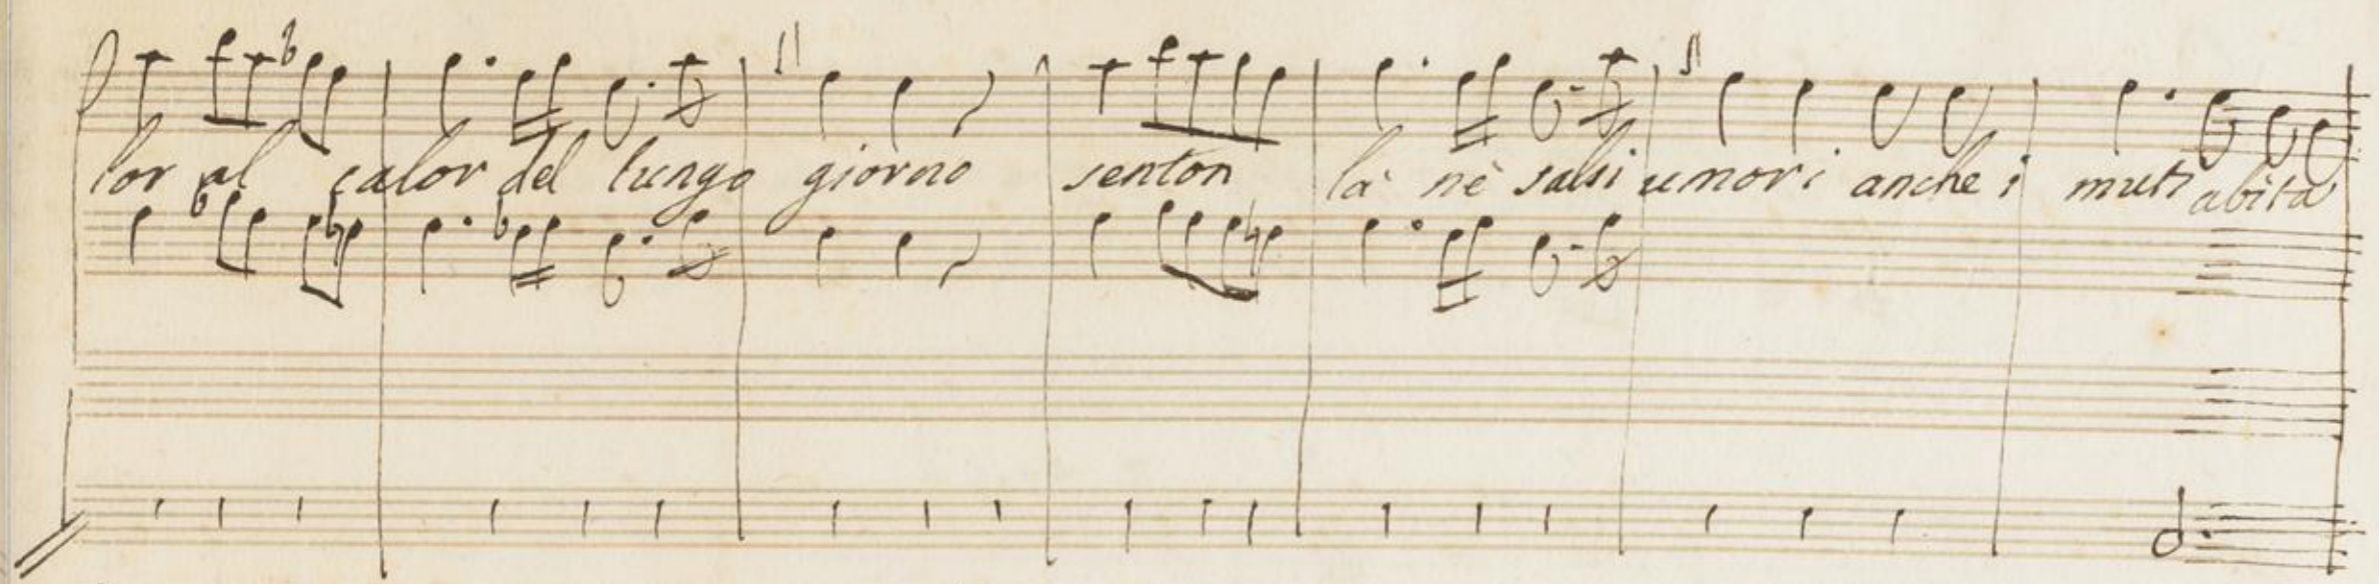 lor al calor del lungo giorno senton là nè salsi umori anche i muti abita